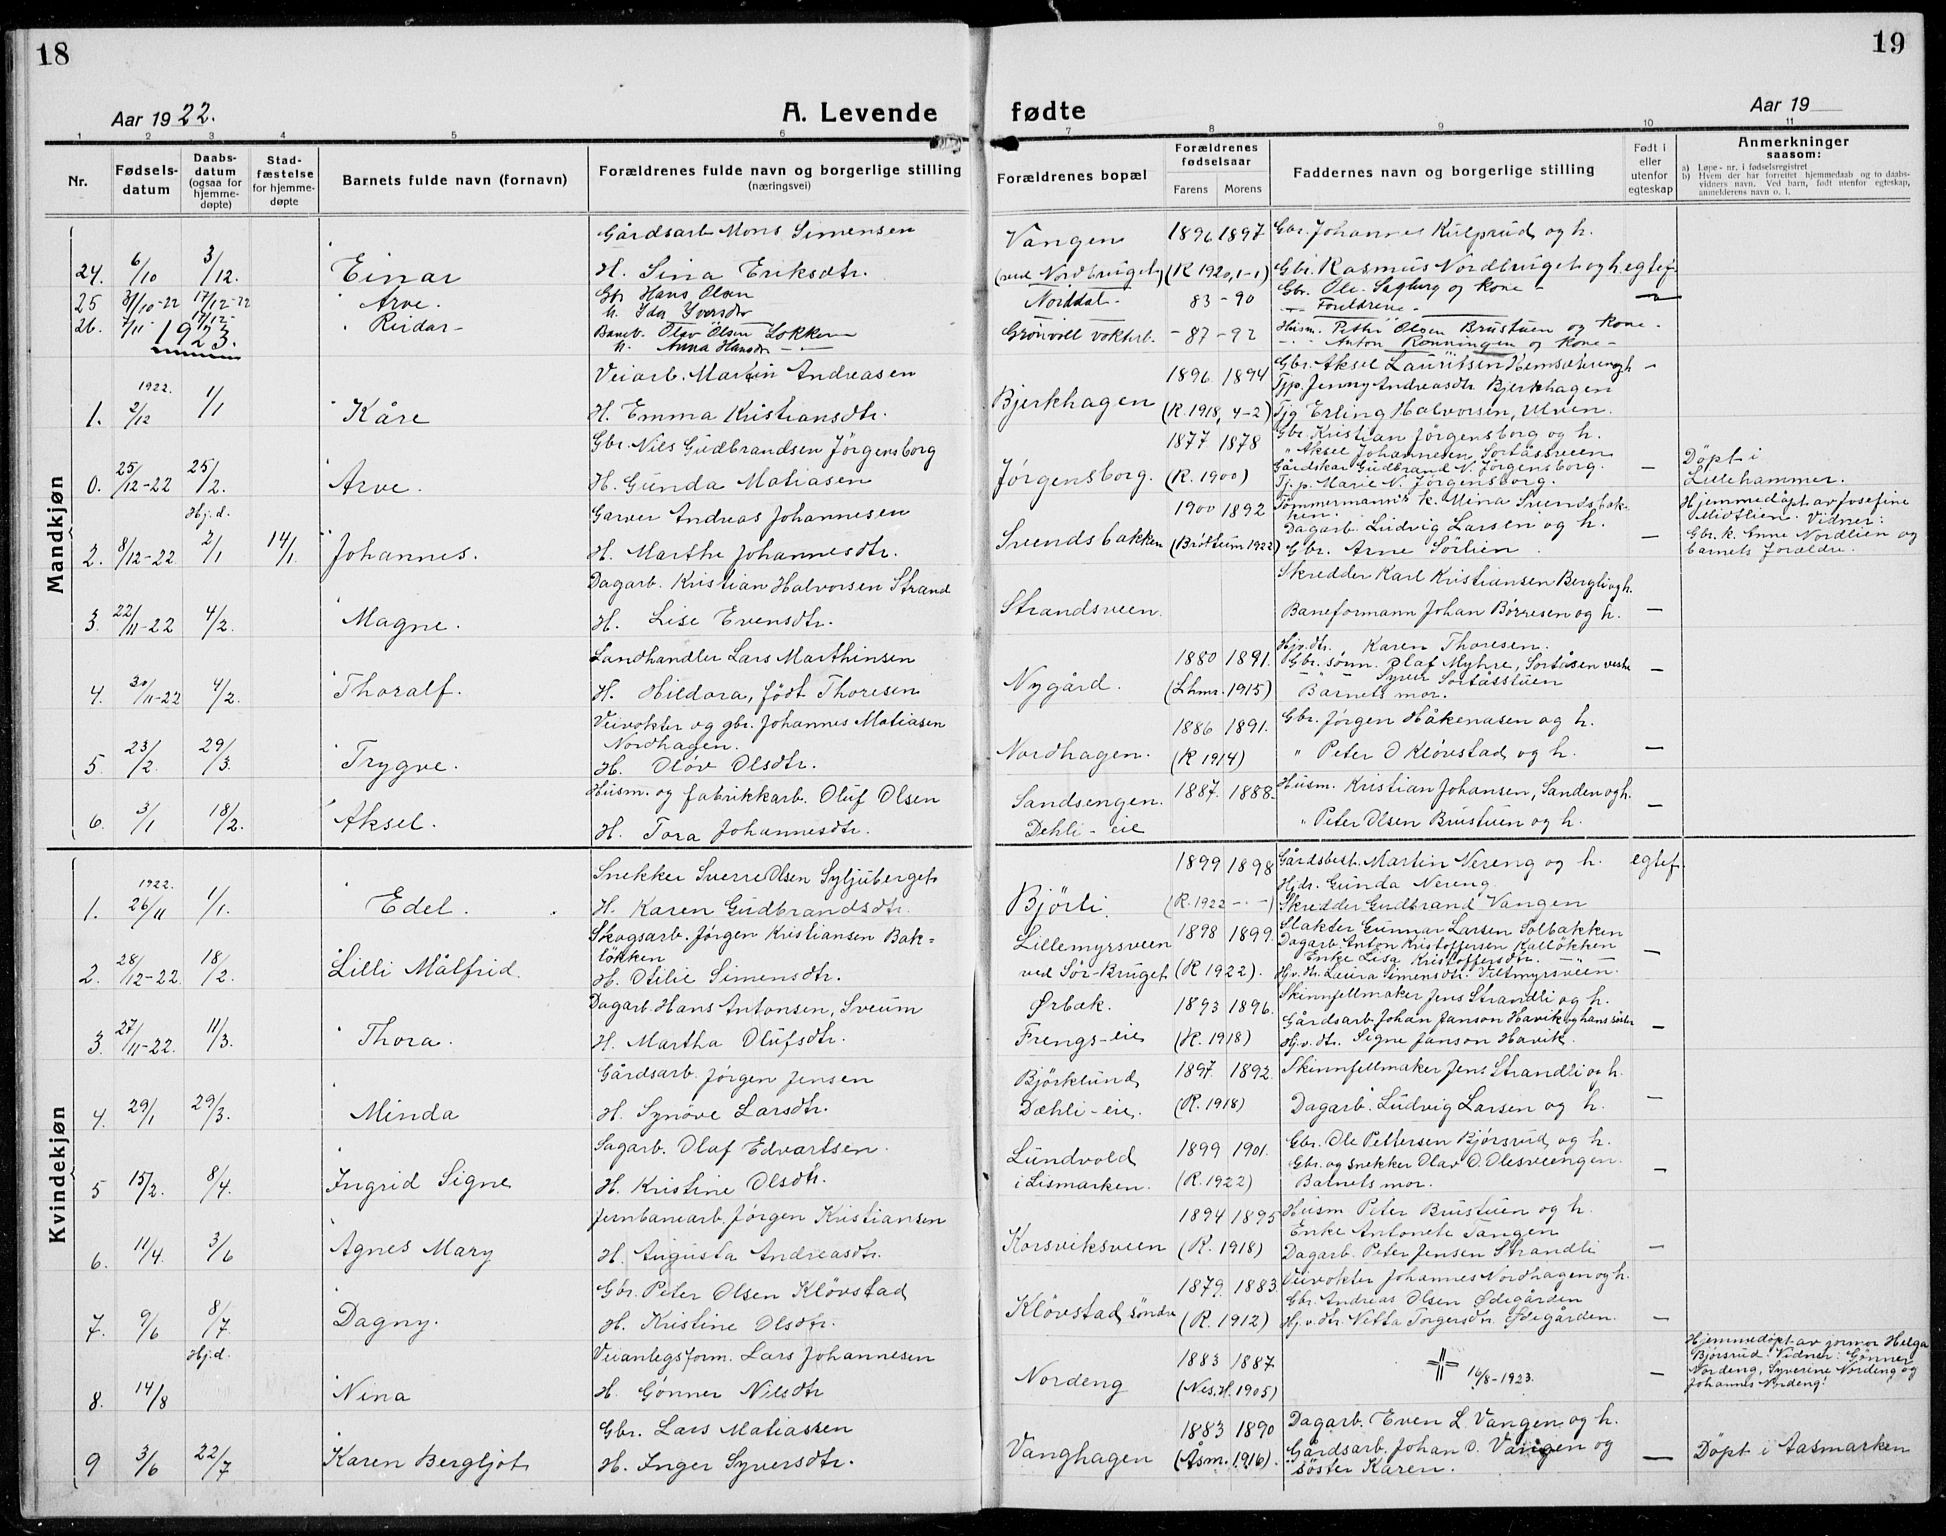 18
19
Aar 1922.
A. Levende
fødte
Aar 19
1 2 3 4 5 6 7 8 9 10 11
Nr.
Fødsels-
datum
Daabs-
datum
(ogsaa for
hjemme-
døpte)
Stad-
fæstelse
for hjemme-
døpte
Barnets fulde navn (fornavn)
Forældrenes fulde navn og borgerlige stilling
(næringsvei)
Forældrenes bopæl
Forældrenes
fødselsaar
Farens Morens
Faddernes navn og borgerlige stilling
Født i
eller
utenfor
egteskap
Anmerkninger
saasom:
a) Løpe-nr. i fødselsregistret
b) Hvem der har forrettet hjemmedaab og to daabs-
vidners navn. Ved barn, født utenfor egteskap,
anmelderens navn o. l.
Mandkjøn
Gårdsarb Mons Simensen Vangen 1896 1897 Gbr. Johannes Kulprud og h.
24. 6/10 3/12. Einar H. Sina Eriksdtr. (ved Nordbruget) (R 1920, 1-1) Gbr. Rasmus Nordbruget og h. egtef.
25 31/10-22 17/12-22 Arve. Gbr Hans Olsen Norddal. 83-90 Gbr. Ole Sagberg og kone -
H. Ida Iversdtr Foreldrene -
26. 7/11- 17/12- Reidar - Baneb. Olav Olsen Løkken Grönvoll vokterb. - 87-92 Husm. Petter Olsen Brustuen og kone -
H. Anna Hansdtr Anton Rønningen og kone -
1923.
Veiarb. Martin Andreasen 1896 1894 Gbr. Aksel Lauritsen Hemsæteren og h -
1922. Tjp. Jenny Andreasdtr Bjerkhagen
1. 2/12 1/1 Kåre H. Emma Kristiansdtr. Bjerkhagen (R. 1918, 4-2) Tjg Erling Halvorsen, Ulven.
Gbr. Nils Gudbrandsen Jörgensborg 1877 1878 Gbr. Kristian Jörgensborg og h.
" Aksel Johannesen Sortåssveen
0. 25/12-22 25/2. Arve. H. Gunda Matiasen Jörgensborg. (R. 1900) Gårdskar Gudbrand N. Jörgensborg. - Döpt i
Tjp. Marie N. Jörgensborg. Lillehammer.
Hj.d. Garver Andreas Johannesen 1900 1892 Tömmermann's k. Mina Svendsbak- Hjemmedöpt av Josefine
ken. Midtlien. Vidner:
2. 8/12-22 2/1 14/1. Johannes. H. Marthe Johannesdtr. Svendsbakken (Bröttum 1922) Dagarb. Ludvig Larsen og h. - Gbr. k. Enne Nordlien og
Gbr. Arne Sörlien. barnets forældre.
Dagarb. Kristian Halvorsen Strand Skredder Karl Kristiansen Bergli og h.
3. 22/11-22 4/2. Magne. H. Lise Evensdtr. Strandsveen. Baneformann Johan Börresen og h. -
Landhandler Lars Marthinsen 1880 1891. Hjv.dtr. Karen Thoresen.
Gbr. sönn. Olaf Myhre, Sortåsen vestre -
4. 30/11-22 4/2. Thoralf. H. Hildora, födt Thoresen Nygård. (Lhmr. 1915) Syver Sortåsstuen
Barnets mor.
Veivokter og gbr. Johannes Matiasen 1886 1891. Gbr. Jörgen Håkenasen og h.
Nordhagen.
5. 23/2. 29/3. Trygve. H. Olöv Olsdtr. Nordhagen. (R 1914) " Peter O Klövstad og h. -
Husm. og fabrikkarb. Oluf Olsen Sandsengen. 1887. 1888. Husm. Kristian Johansen, Sanden og h.
6. 3/1 18/2. Aksel. H. Tora Johannesdtr. Dehli-eie " Peter Olsen Brustuen og h. -
Kvindekjøn
Snekker Sverre Olsen Syljuberget 1899 1898 Gårdsbest. Martin Nereng og h. egtef.
1922. Hjdr. Gunda Nereng
1. 26/11 1/1. Edel. H. Karen Gudbrandsdtr. Björli. (R. 1922 - - -) Skredder Gudbrand Vangen
Skogsarb. Jörgen Kristiansen Bak- Lillemyrsveen 1898 1899. Slakter Gunnar Larsen Solbakken
lökken Dagarb. Anton Kristoffersen Kallökken -
Enke Lisa Kristoffersdtr.
2. 28/12-22. 18/2. Lilli Målfrid. H. Otilie Simensdtr. ved Sör-Bruget (R 1922). Hjv.dtr. Laura Simensdtr. Veltmyrsveen.
Dagarb Hans Antonsen, Sveum Ørbæk. 1893 1896. Skinnfellmaker Jens Strandli og h.
Gårdsarb. Johan Janson Havik og hans söster -
3. 27/11-22. 11/3. Thora. H. Martha Olufsdtr. Frengs-eie (R. 1918) Hj.v.dtr. Signe Janson Havik.
Gårdsarb. Jörgen Jensen Björklund 1897. 1892. Skinnfellmaker Jens Strandli og h.
4. 29/1 29/3. Minda H. Synöve Larsdtr. Dæhli-eie. (R. 1918) Dagarb. Ludvig Larsen og h. -
Sagarb. Olaf Edvartsen. Lundvold 1899 1901. Gbr. Ole Pettersen Bjørsrud og h.
Gbr. og snekker Olav O. Olesveengen. -
5 15/2. 8/4. Ingrid Signe H. Kristine Olsdtr. i Lismarken. (R. 1922) Barnets mor.
Jernbanearb. Jörgen Kristiansen 1894 1895 Husm Peter Brustuen og h.
Enke Antonete Tangen
6. 11/4. 3/6 Agnes Mary H. Augusta Andreasdtr. Korsviksveen (R. 1918) Dagarb. Peter Jensen Strandli -
Gbr. Peter Olsen Klövstad 1879. 1883. Veivokter Johannes Nordhagen og h.
Gbr. Andreas Olsen Ødegården
7. 9/6 8/7 Dagny. H. Kristine Olsdtr. Klövstad söndre (R. 1912) Hj.v.dtr. Netta Torgersdtr. Ødegården. -
Hj.d. Veianlegsform. Lars Johannesen 1883 1887 Hjemmedöpt av jormor Helga
Bjørsrud. Vidner: Gönner
8. 14/8 Nina H. Gönner Nilsdtr Nordeng (Nes. H. 1905) 16/8-1923. - Nordeng, Syverine Nordeng og
Johannes Nordeng.
Gbr. Lars Matiassen 1883 1890 Dagarb. Even L. Vangen og h.
9 3/6 22/7 Karen Bergljot H. Inger Syversdtr. Vanghagen (Åsm. 1916). Gårdsarb. Johan O. Vangen og - Döpt i Aasmarken
söster Karen.